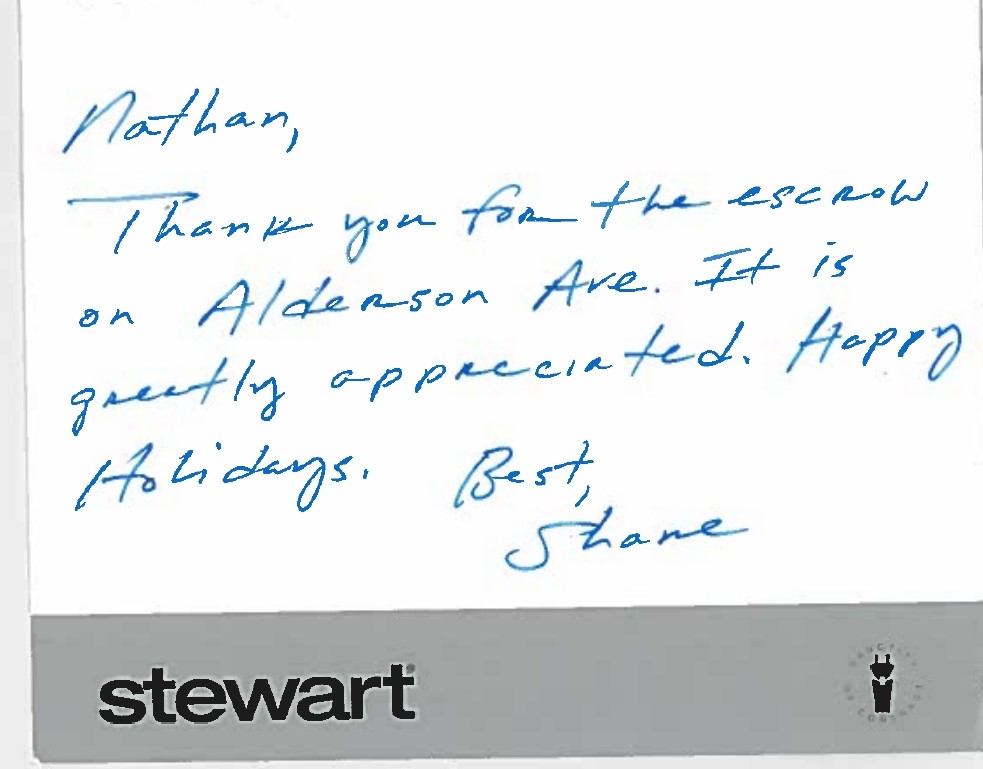 Nathan,
Thank you for the escrow
on Alderson Ave. It is
greatly appreciated. Happy
Holidays. Best,
Shane
stewart
SANCTITY OF CONTRACT